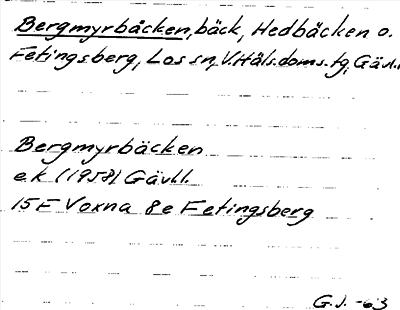 Bergmyrbäcken, bäck, Hedbäcken o.
Fetingsberg, Los sn, V. Häls. doms. tg, Gävl.
Bergmyrbäcken
e.k (1958) Gävl.l.
15F Voxna 8e Fetingsberg
G.J. -63